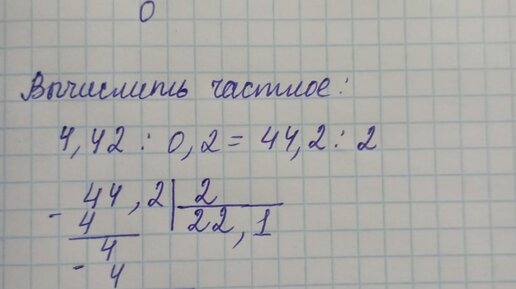 0
Вычислить частное:
4,42 : 0,2 = 44,2 : 2
- 44,2 | 2
4 22,1
4
- 4